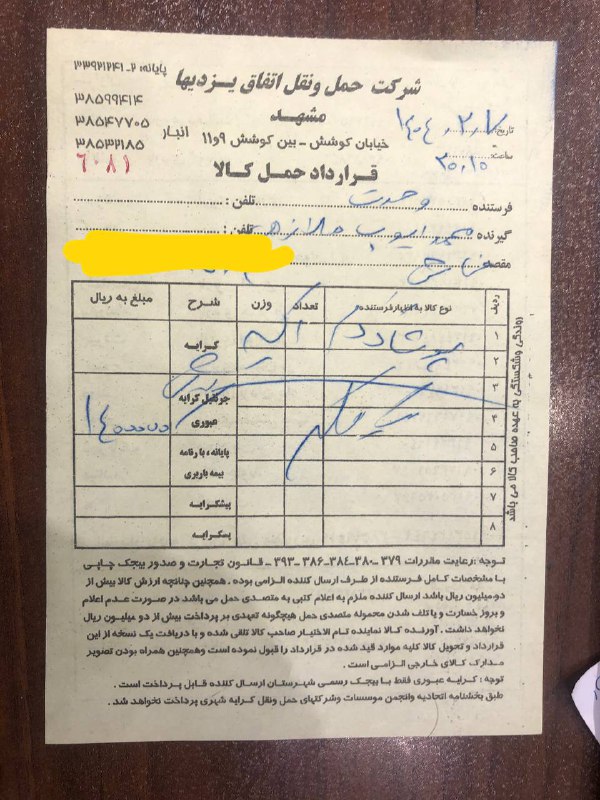 شرکت حمل ونقل اتفاق یزدیها
پایانه: ۲-۳۳۹۲۱۲۴۱
مشهد
۳۸۵۹۹۴۱۴
۳۸۵۴۷۷۰۵
انبار
۳۸۵۳۲۱۸۵
خیابان کوشش - بین کوشش ۹و۱۱
تاریخ: ۱۴۰۴
ساعت:
۶۰۸۱
قرارداد حمل کالا
فرستنده وحدت تلفن:
گیرنده محمد ایوب تلفن:
مقصد
ردیف نوع کالا به اظهار فرستنده تعداد وزن شرح مبلغ به ریال
۱
کرایه
۲
۳
جرثقیل کرایه
۴
عبوری
۵
پایانه، بارنامه
۶
بیمه باربری
۷ پیشکرایه
۸ پسکرایه
روندگی وشکستگی به عهده صاحب کالا می باشد
توجه: رعایت مقررات ۳۷۹-۳۸۰-۳۸۴-۳۸۶-۳۹۳- قانون تجارت و صدور بیجک چاپی
با مشخصات کامل فرستنده از طرف ارسال کننده الزامی بوده. همچنین چنانچه ارزش کالا بیش از
دو میلیون ریال باشد ارسال کننده ملزم به اعلام کتبی به متصدی حمل می باشد در صورت عدم اعلام
و بروز خسارت و یا تلف شدن محموله متصدی حمل هیچگونه تعهدی بر پرداخت بیش از دو میلیون ریال
نخواهد داشت. آورنده کالا نماینده تام الاختیار صاحب کالا تلقی شده و با دریافت یک نسخه از این
قرارداد و تحویل کالا کلیه موارد قید شده در قرارداد را قبول نموده است وهمچنین همراه بودن تصویر
مدارک کالای خارجی الزامی است.
توجه: کرایه عبوری فقط با بیجک رسمی شهرستان ارسال کننده قابل پرداخت است.
طبق بخشنامه اتحادیه وانجمن موسسات وشرکتهای حمل ونقل کرایه شهری پرداخت نخواهد شد.